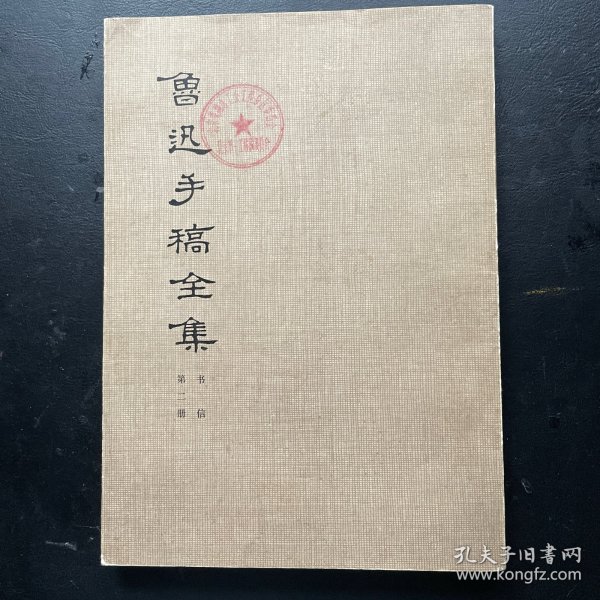 魯迅手稿全集
书信
第二册
孔夫子旧書网
www.kongfz.com